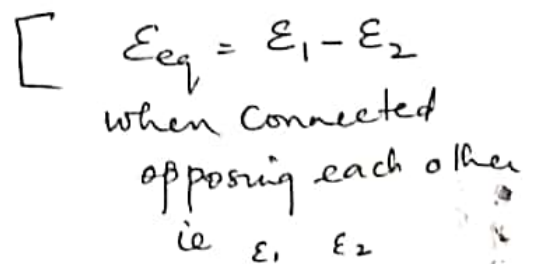 [ Ɛeq = Ɛ1 - Ɛ2
when connected
opposing each other
ie Ɛ1 Ɛ2